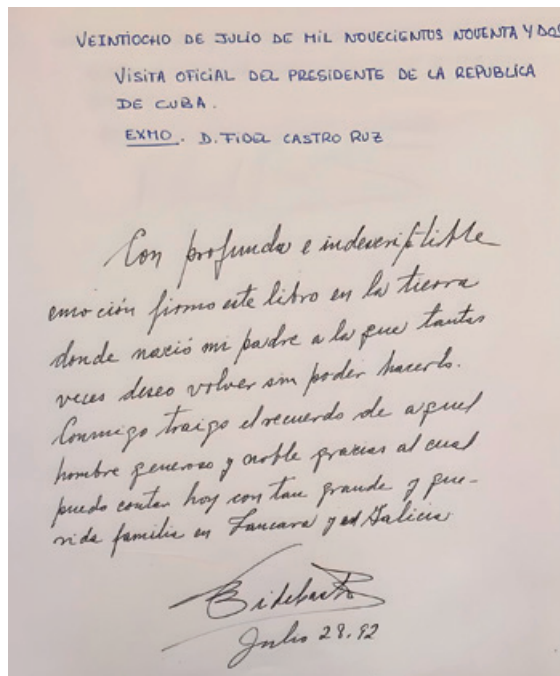 VEINTIOCHO DE JULIO DE MIL NOVECIENTOS NOVENTA Y DOS
VISITA OFICIAL DEL PRESIDENTE DE LA REPUBLICA
DE CUBA.
EXMO. D. FIDEL CASTRO RUZ
Con profunda e indescriptible
emoción firmo este libro en la tierra
donde nació mi padre a la que tantas
veces deseo volver sin poder hacerlo.
Conmigo traigo el recuerdo de aquel
hombre generoso y noble gracias al cual
puedo contar hoy con tan grande y que-
rida familia en Lancara y en Galicia
Fidel Castro
Julio 28.92